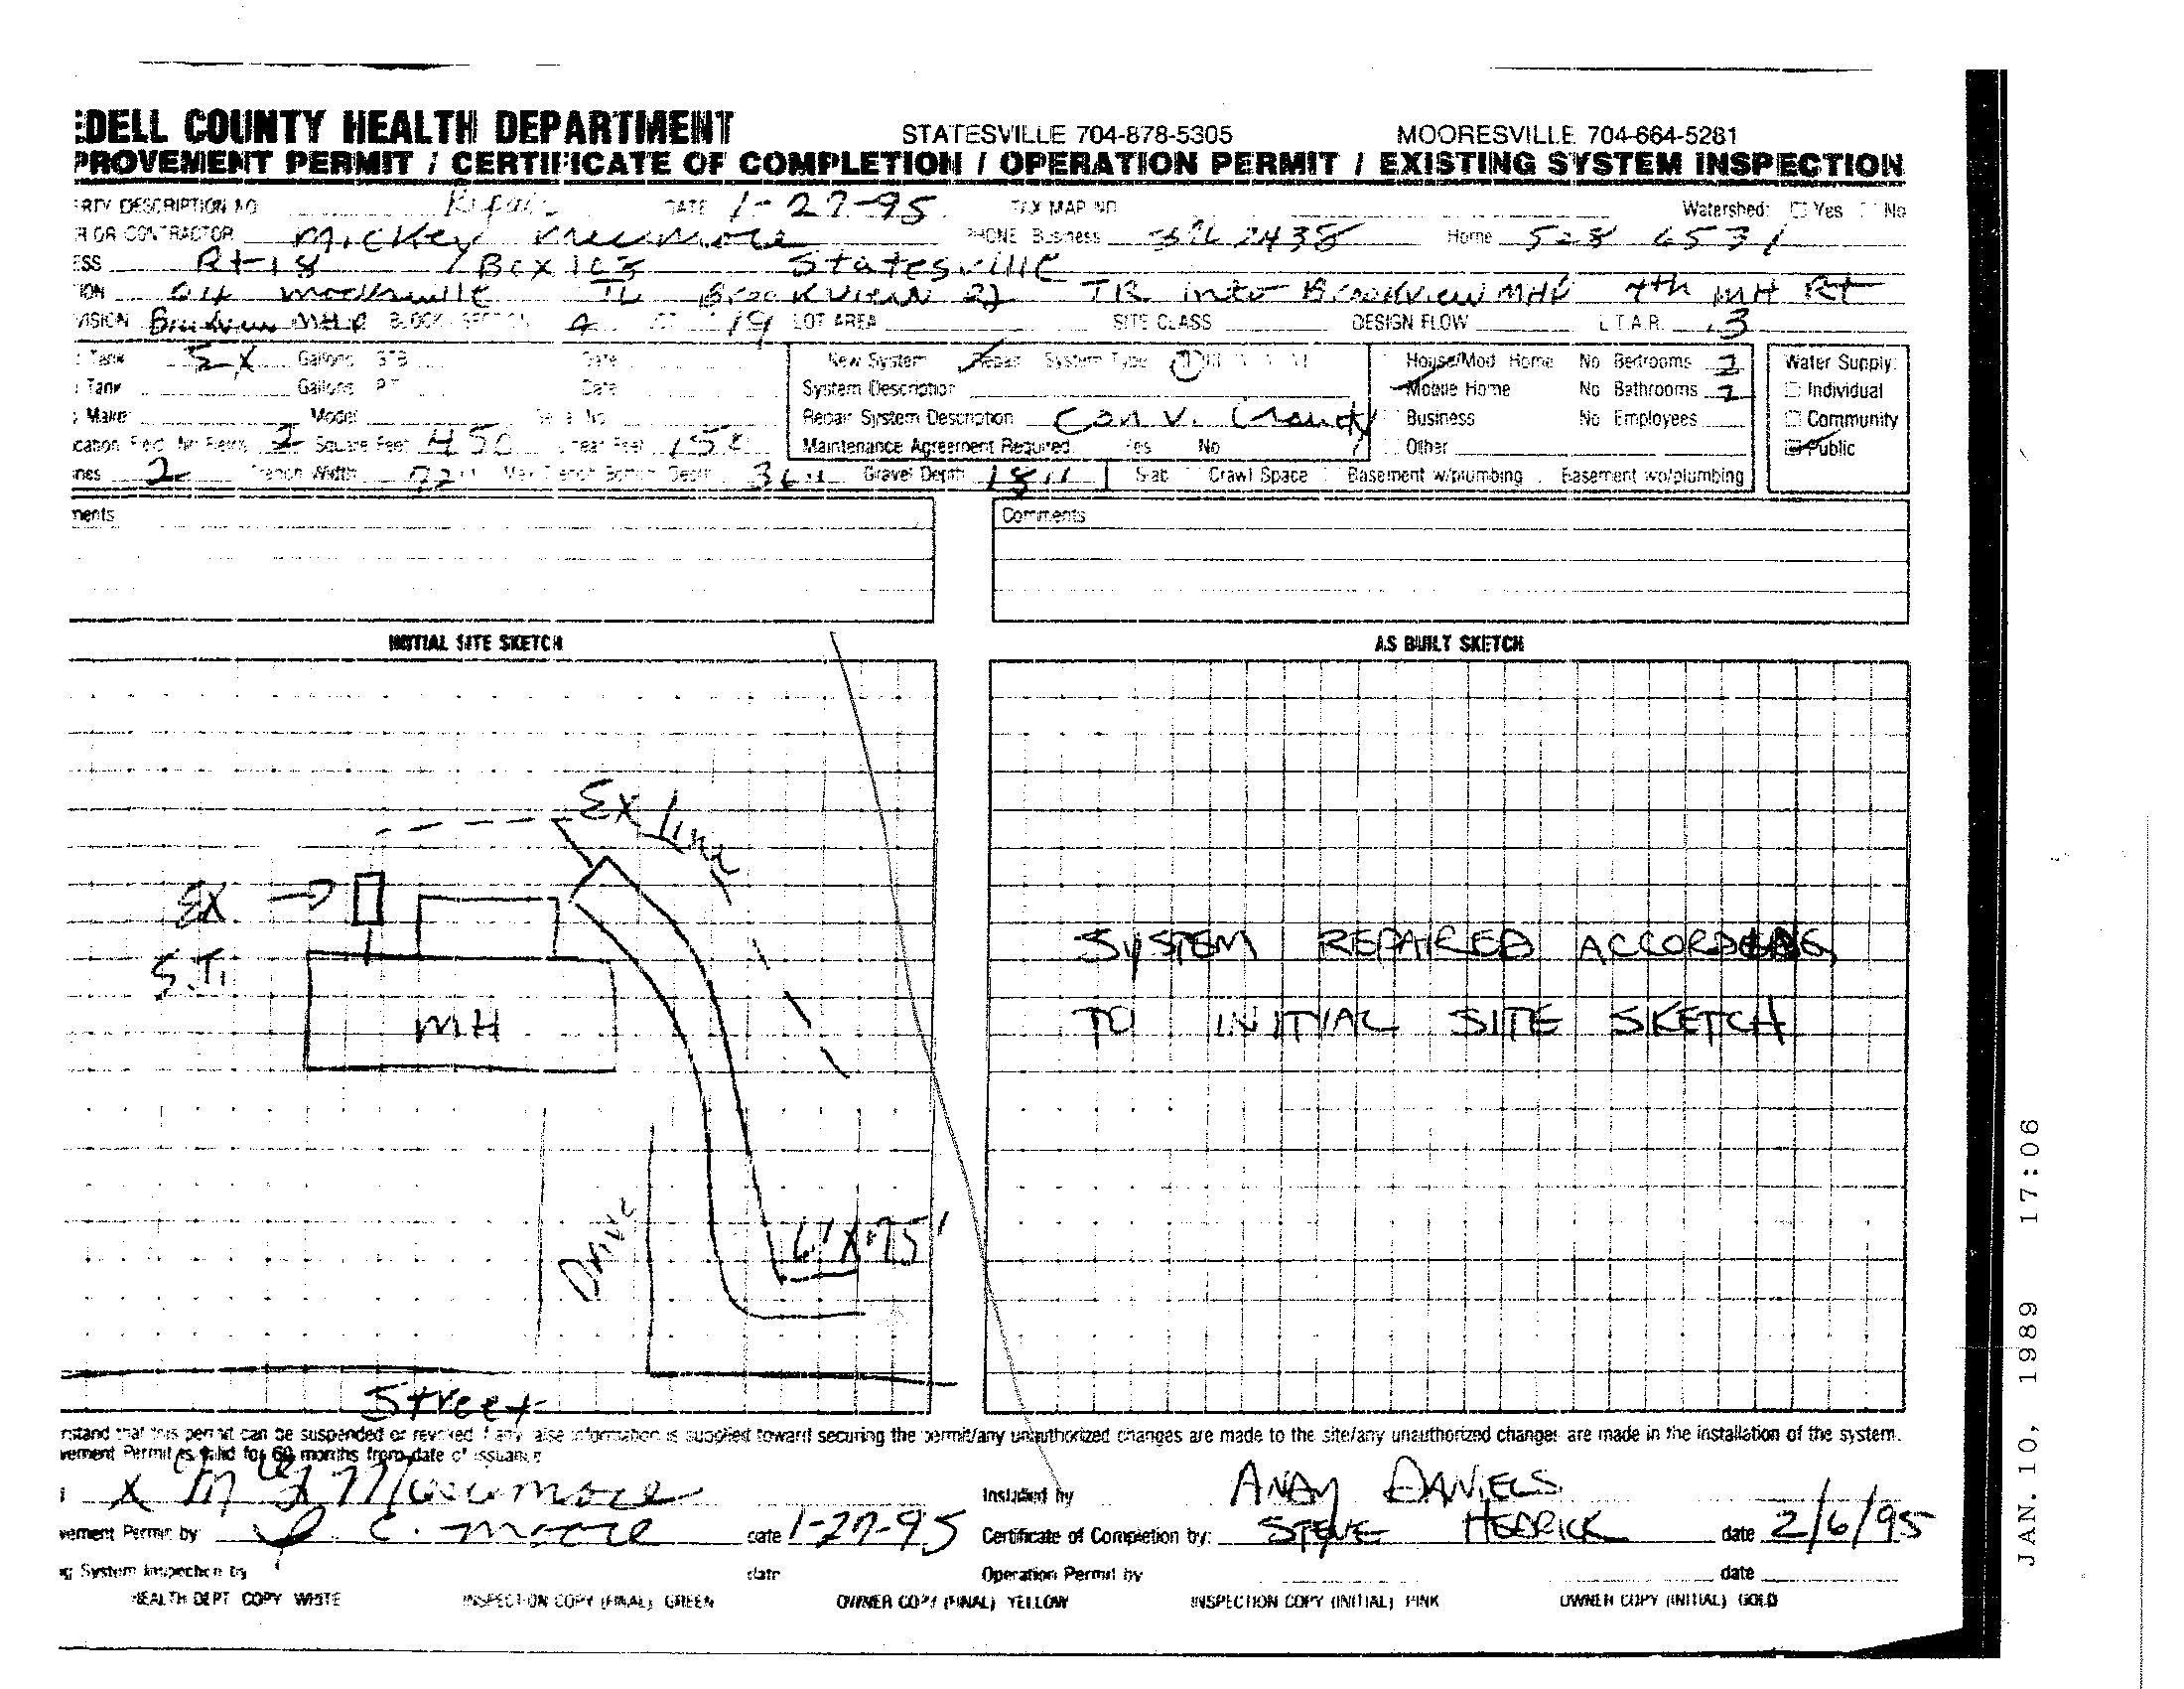 EDELL COUNTY HEALTH DEPARTMENT STATESVILLE 704-878-5305 MOORESVILLE 704-664-5281
PROVEMENT PERMIT / CERTIFICATE OF COMPLETION / OPERATION PERMIT / EXISTING SYSTEM INSPECTION
ERTY DESCRIPTION NO Repair DATE 1-27-95 TAX MAP NO Watershed: Yes No
R OR CONTRACTOR Mickey PHONE Business 2438 Home 528 6531
ESS Rt 18 Box 103 Statesville
ION 64 Mocksville TL Brookview Rd TR into Brookview MHP 4th MH Rt
VISION Brookview MHP BLOCK SECTION A LOT 19 LOT AREA SITE CLASS DESIGN FLOW L.T.A.R. .3
Tank EX Gallons STB Date New System Repair System Type House/Mod. Home No Bedrooms 2 Water Supply:
Tank Gallons PT Date System Description Mobile Home No Bathrooms 2 Individual
Make Model Serial No Repair System Description Conv. Gravity Business No Employees Community
cation Field No Fields 2 Square Feet 450 Linear Feet 150 Maintenance Agreement Required Yes No Other Public
ines 2 Trench Width Max Trench Bottom Depth 36" Gravel Depth 18" Slab Crawl Space Basement w/plumbing Basement wo/plumbing
ments Comments
INITIAL SITE SKETCH AS BUILT SKETCH
EX Line
EX
S.T.
MH
SYSTEM REPAIRED ACCORDING
TO INITIAL SITE SKETCH
Drive
Street
rstand that this permit can be suspended or revoked if any false information is supplied toward securing the permit/any unauthorized changes are made to the site/any unauthorized changes are made in the installation of the system.
vement Permit is valid for 60 months from date of issuance
X Installed by ANDY DANIELS
vement Permit by C. Moore date 1-27-95 Certificate of Completion by: STEVE HEDRICK date 2/6/95
g System Inspection by date Operation Permit by date
HEALTH DEPT COPY WHITE INSPECTION COPY (FINAL) GREEN OWNER COPY (FINAL) YELLOW INSPECTION COPY (INITIAL) PINK OWNER COPY (INITIAL) GOLD
JAN. 10, 1989 17:06